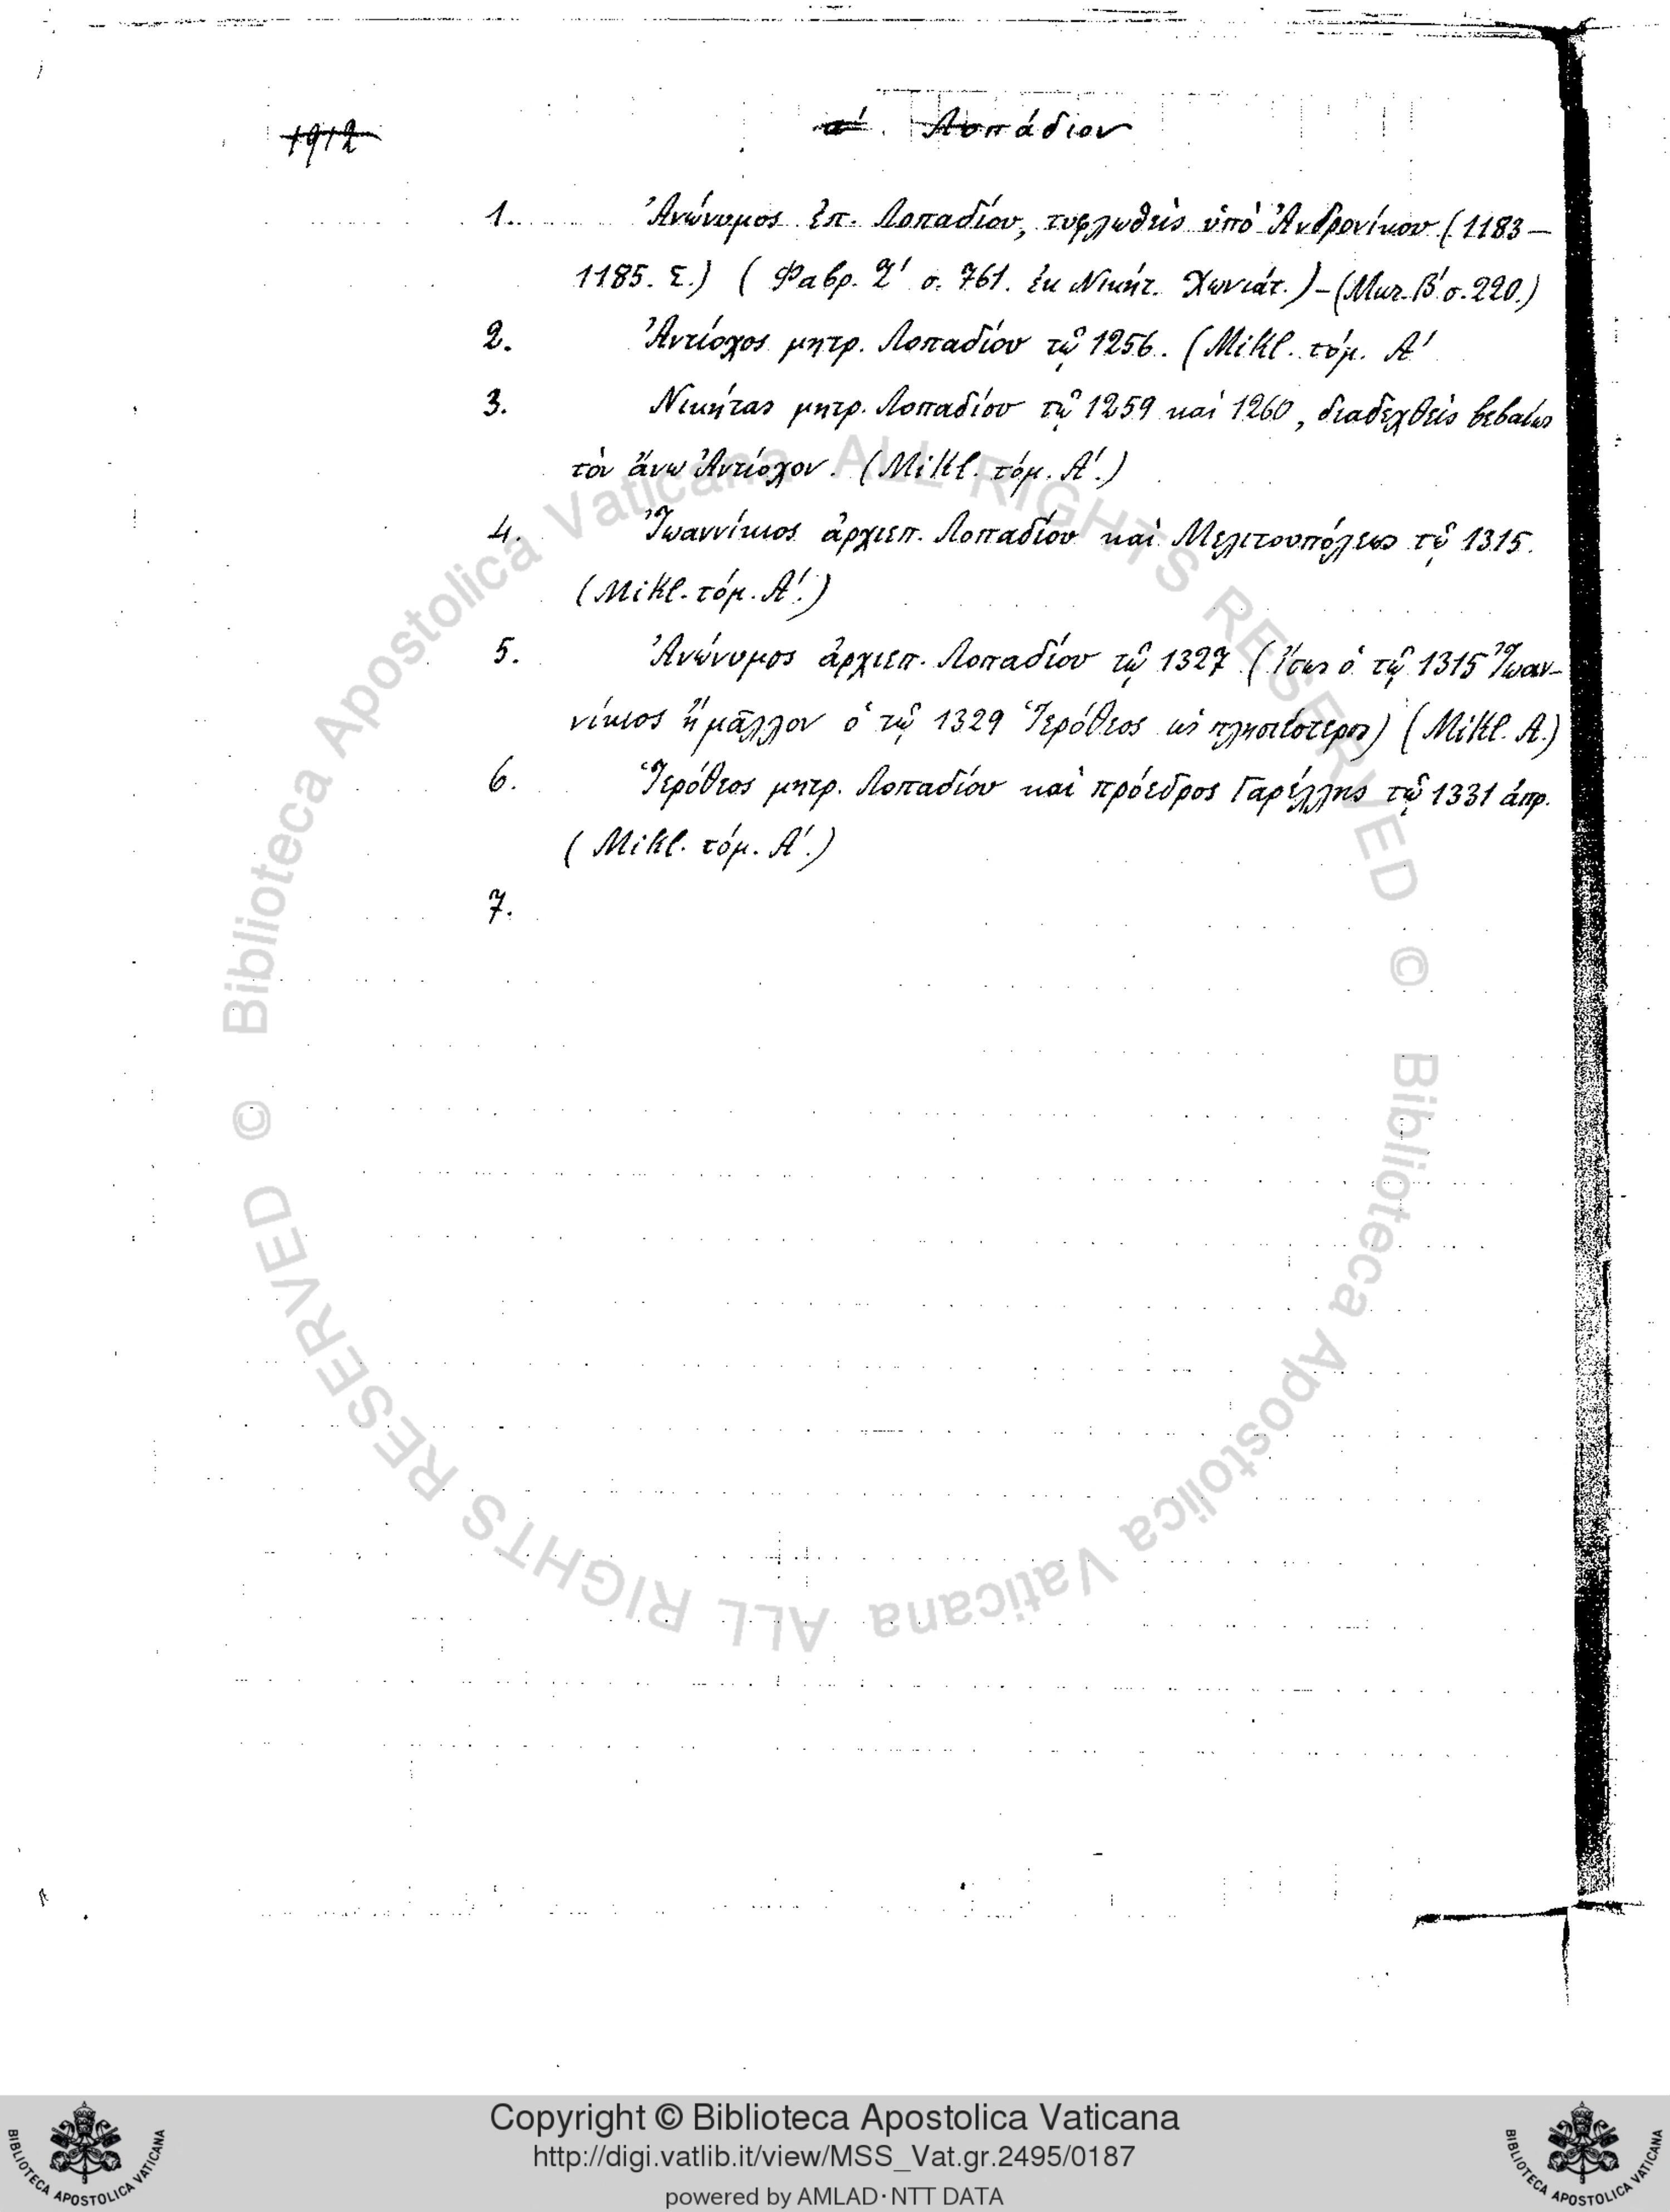 1912
α΄. Λοπάδιον
1. Ἀνώνυμος ἐπ. Λοπαδίου, τυφλωθεὶς ὑπὸ Ἀνδρονίκου (1183–
1185. Σ.) (Φαβρ. Ζ΄ σ. 761. ἐκ Νικήτ. Χωνιάτ.) – (Μικ. Β΄ σ. 220.)
2. Ἀντίοχος μητρ. Λοπαδίου τῷ 1256. (Mikl. τόμ. Α΄
3. Νικήτας μητρ. Λοπαδίου τῷ 1259 καὶ 1260, διαδεχθεὶς βεβαίως
τὸν ἄνω Ἀντίοχον. (Mikl. τόμ. Α΄.)
4. Ἰωαννίκιος ἀρχιεπ. Λοπαδίου καὶ Μελιτουπόλεως τῷ 1315.
(Mikl. τόμ. Α΄.)
5. Ἀνώνυμος ἀρχιεπ. Λοπαδίου τῷ 1327 (ἴσως ὁ τῷ 1315 Ἰωαν–
νίκιος ἢ μᾶλλον ὁ τῷ 1329 Ἱερόθεος ὡς πλησιέστερος) (Mikl. Α.)
6. Ἱερόθεος μητρ. Λοπαδίου καὶ πρόεδρος Γαρέλλης τῷ 1331 ἀπρ.
(Mikl. τόμ. Α΄.)
7.
© Biblioteca Apostolica Vaticana ALL RIGHTS RESERVED
© Biblioteca Apostolica Vaticana ALL RIGHTS RESERVED
Copyright © Biblioteca Apostolica Vaticana
http://digi.vatlib.it/view/MSS_Vat.gr.2495/0187
powered by AMLAD·NTT DATA
BIBLIOTECA APOSTOLICA VATICANA
BIBLIOTECA APOSTOLICA VATICANA